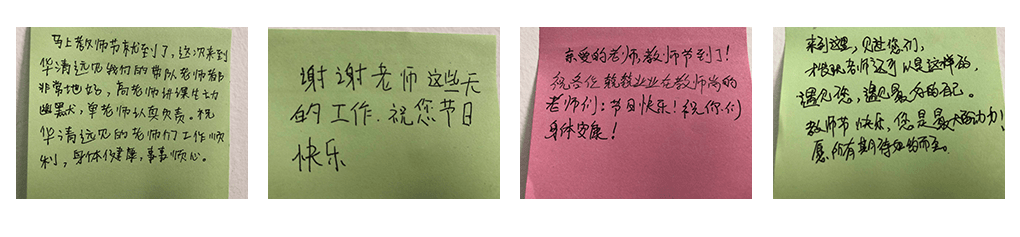 马上教师节就到了，这次来到
华清远见我们的带队老师都
非常地好，高老师讲课生动
幽默，单老师认真负责。祝
华清远见的老师们工作顺
利，身体健康，事事顺心。
谢谢老师这些天
的工作.祝您节日
快乐
亲爱的老师,教师节到了!
祝各位兢兢业业在教师岗的
老师们：节日快乐！祝你们
身体安康！
来到这里，见过您们，
才知耿老师还可以是这样的，
遇见您，遇见最好的自己。
教师节快乐，您是最大的动力！
愿所有期待如约而至。